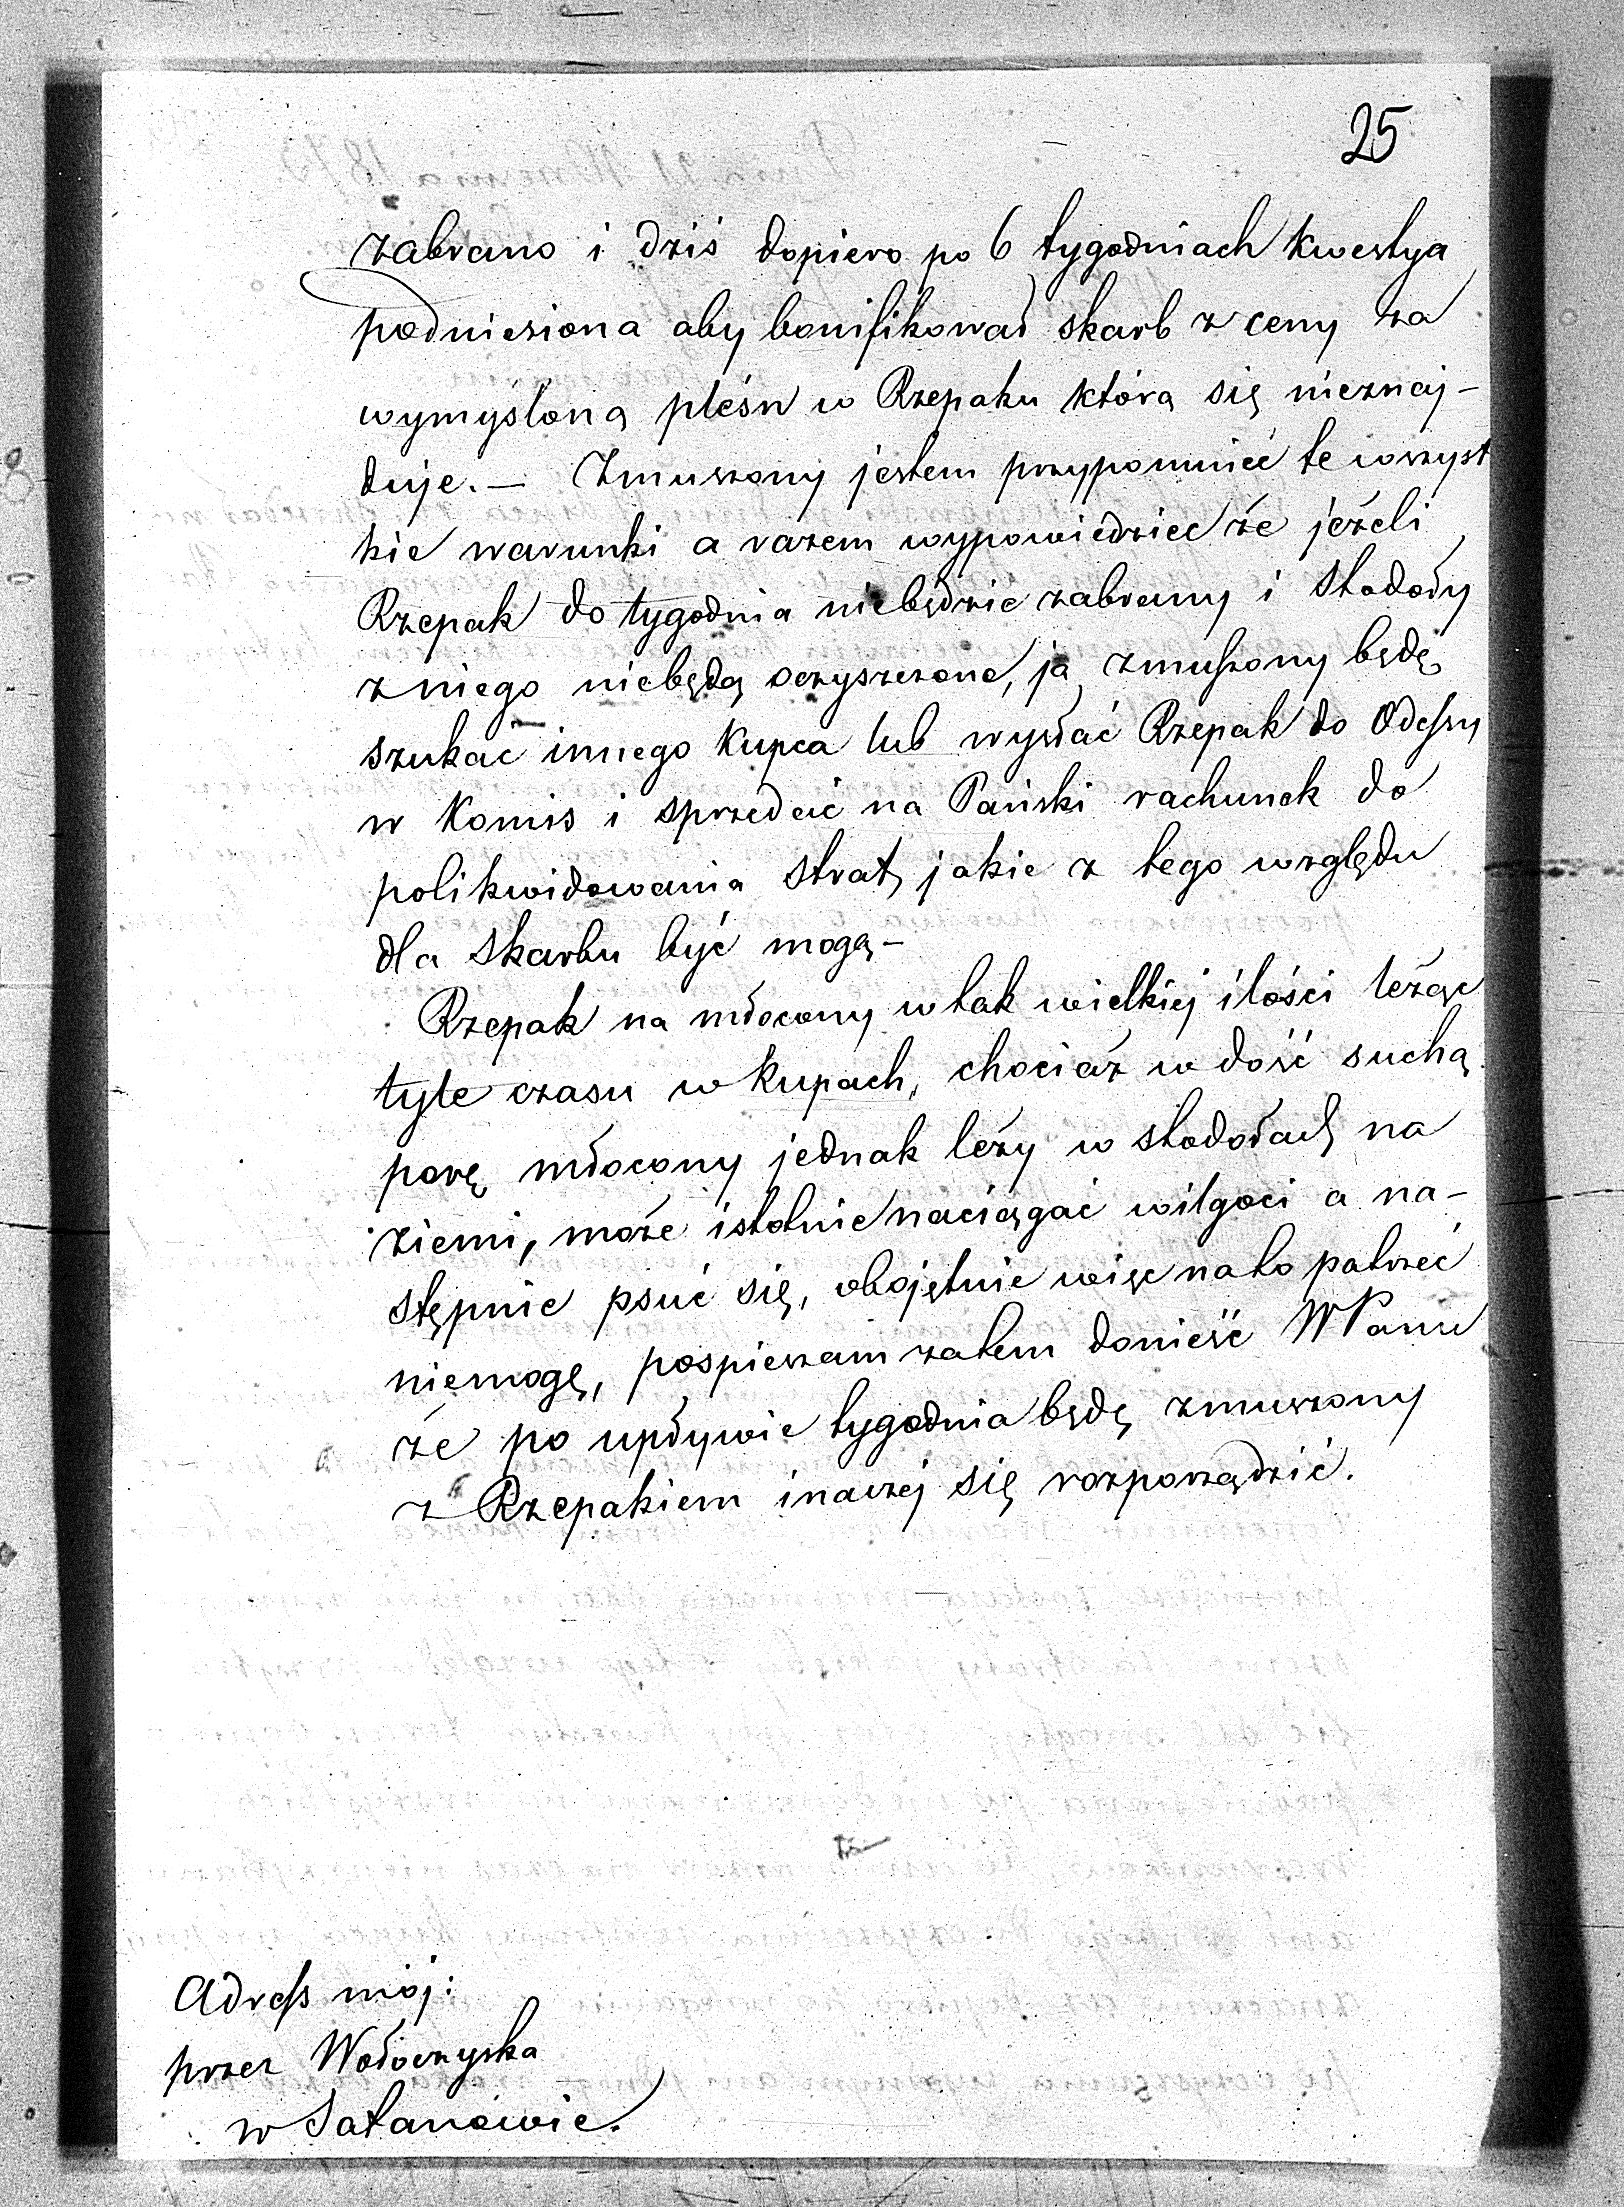 25
zabrano i dziś dopiero po 6 tygodniach kwestya
podniesiona aby bonifikował skarb z ceny za
wymyśloną pleśń w Rzepaku którą się nieznaj-
duje. — Zmuszony jestem przypomnieć te wszyst
kie warunki a razem wypowiedzieć że jeżeli
Rzepak do tygodnia niebędzie zabrany i stodoły
z niego niebędą oczyszczone, ja zmuszony będę
szukać innego kupca lub wysłać Rzepak do Odessy
w Komis i sprzedać na Pański rachunek do
polikwidowania strat, jakie z tego względu
dla skarbu być mogą –
Rzepak na młocony w tak wielkiej ilości leżąc
tyle czasu w kupach, chociaż w dość suchą
porę młocony jednak leży w stodołach na
ziemi, może istotnie naciągać wilgoci a na-
stępnie psuć się, obojętnie więc na to patrzeć
niemogę, pospieszam zatem donieść WPanu
że po upływie tygodnia będę zmuszony
z Rzepakiem inaczej się rozporządzić.
Adress mój:
przez Wołoczyska
w Satanowie.